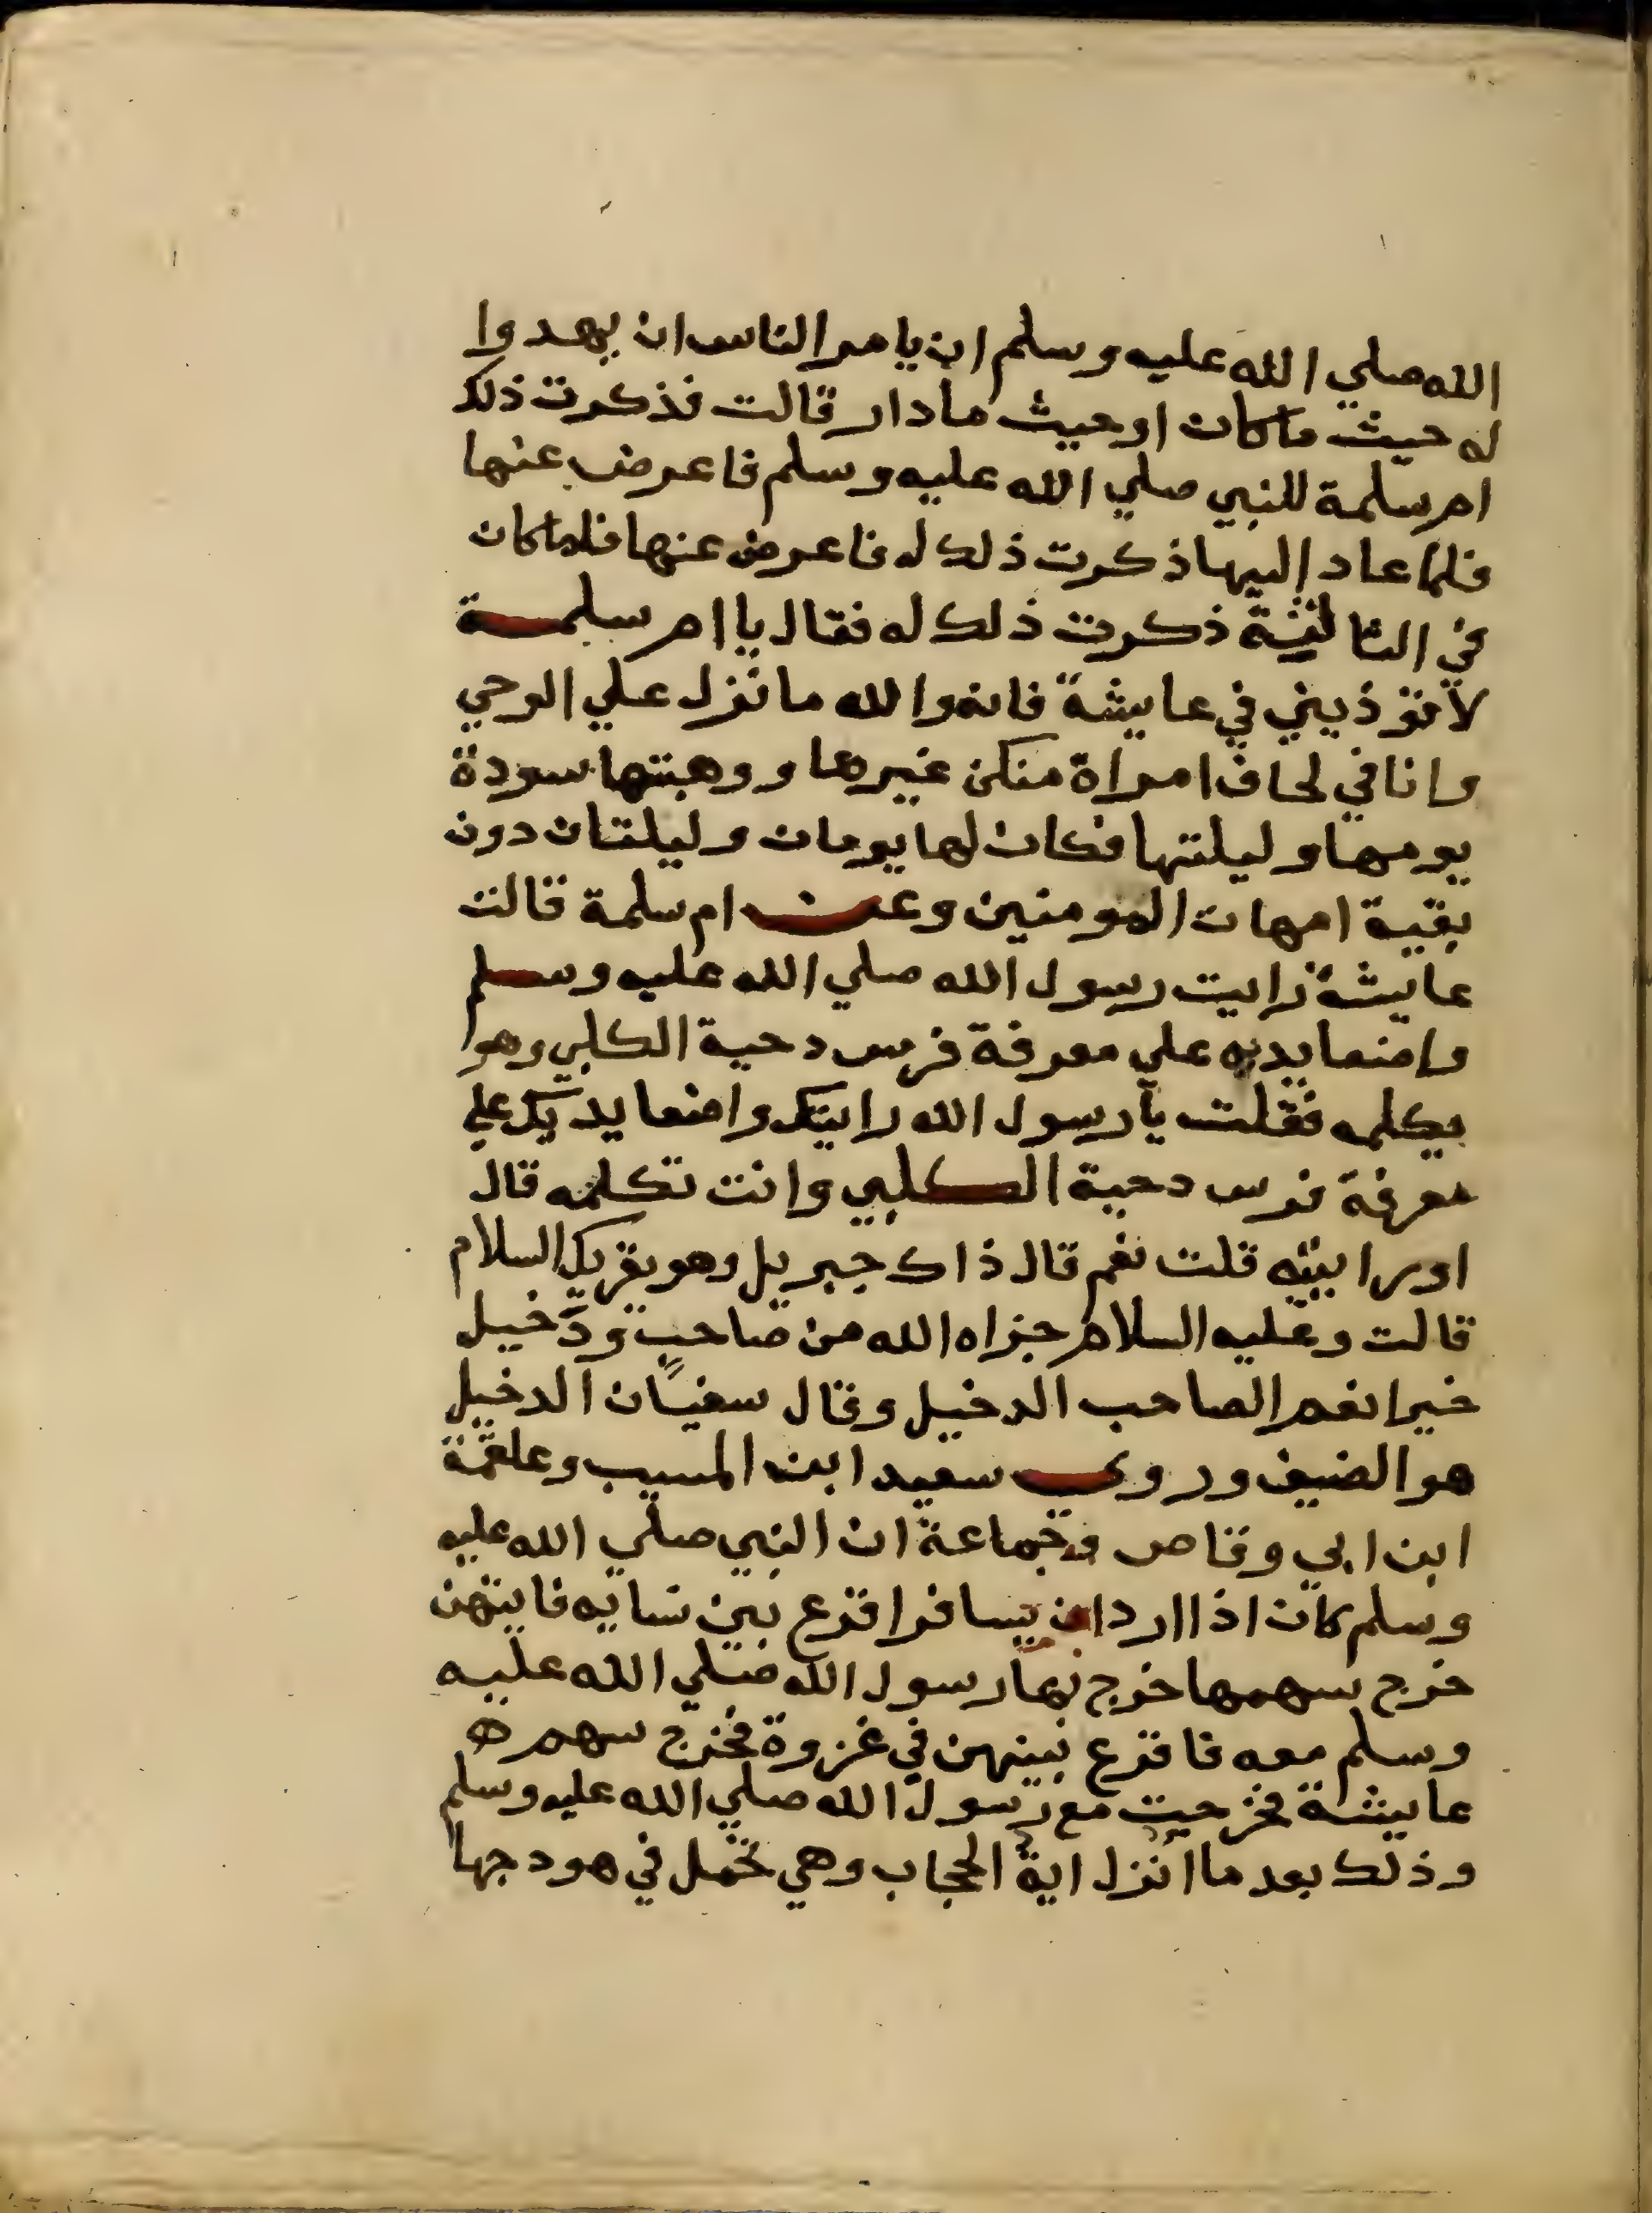 الله صلي الله عليه وسلم ان يامر الناس ان يهدوا
له حيث ما كان او حيث ما دار قالت فذكرت ذلك
ام سلمة للنبي صلي الله عليه وسلم فاعرض عنها
فلما عاد إليها ذكرت ذلك له فاعرض عنها فلما كان
في الثالثة ذكرت ذلك له فقال يا ام سلمة
لا تؤذيني في عايشة فانه والله ما نزل علي الوحي
وانا في لحاف امراة منكن غيرها ووهبتها سودة
يومها وليلتها فكان لها يومان وليلتان دون
بقية امهات المومنين وعن ام سلمة قالت
عايشة رايت رسول الله صلي الله عليه وسلم
واضعا يديه علي معرفة فرس دحية الكلبي وهو
يكلمه فقلت يا رسول الله رايتك واضعا يديك علي
معرفة فرس دحية الكلبي وانت تكلمه قال
اورايتيه قلت نعم قال ذاك جبريل وهو يقريك السلام
قالت وعليه السلام جزاه الله من صاحب ودخيل
خيرا نعم الصاحب الدخيل وقال سفيان الدخيل
هو الضيف وروي سعيد ابن المسيب وعلقمة
ابن ابي وقاص وجماعة ان النبي صلي الله عليه
وسلم كان اذا ارد ان يسافر اقرع بين نسايه فايتهن
خرج سهمها خرج بها رسول الله صلي الله عليه
وسلم معه فاقرع بينهن في غزوة فخرج سهم
عايشة فخرجت مع رسول الله صلي الله عليه وسلم
وذلك بعد ما انزل اية الحجاب وهي تحمل في هودجها